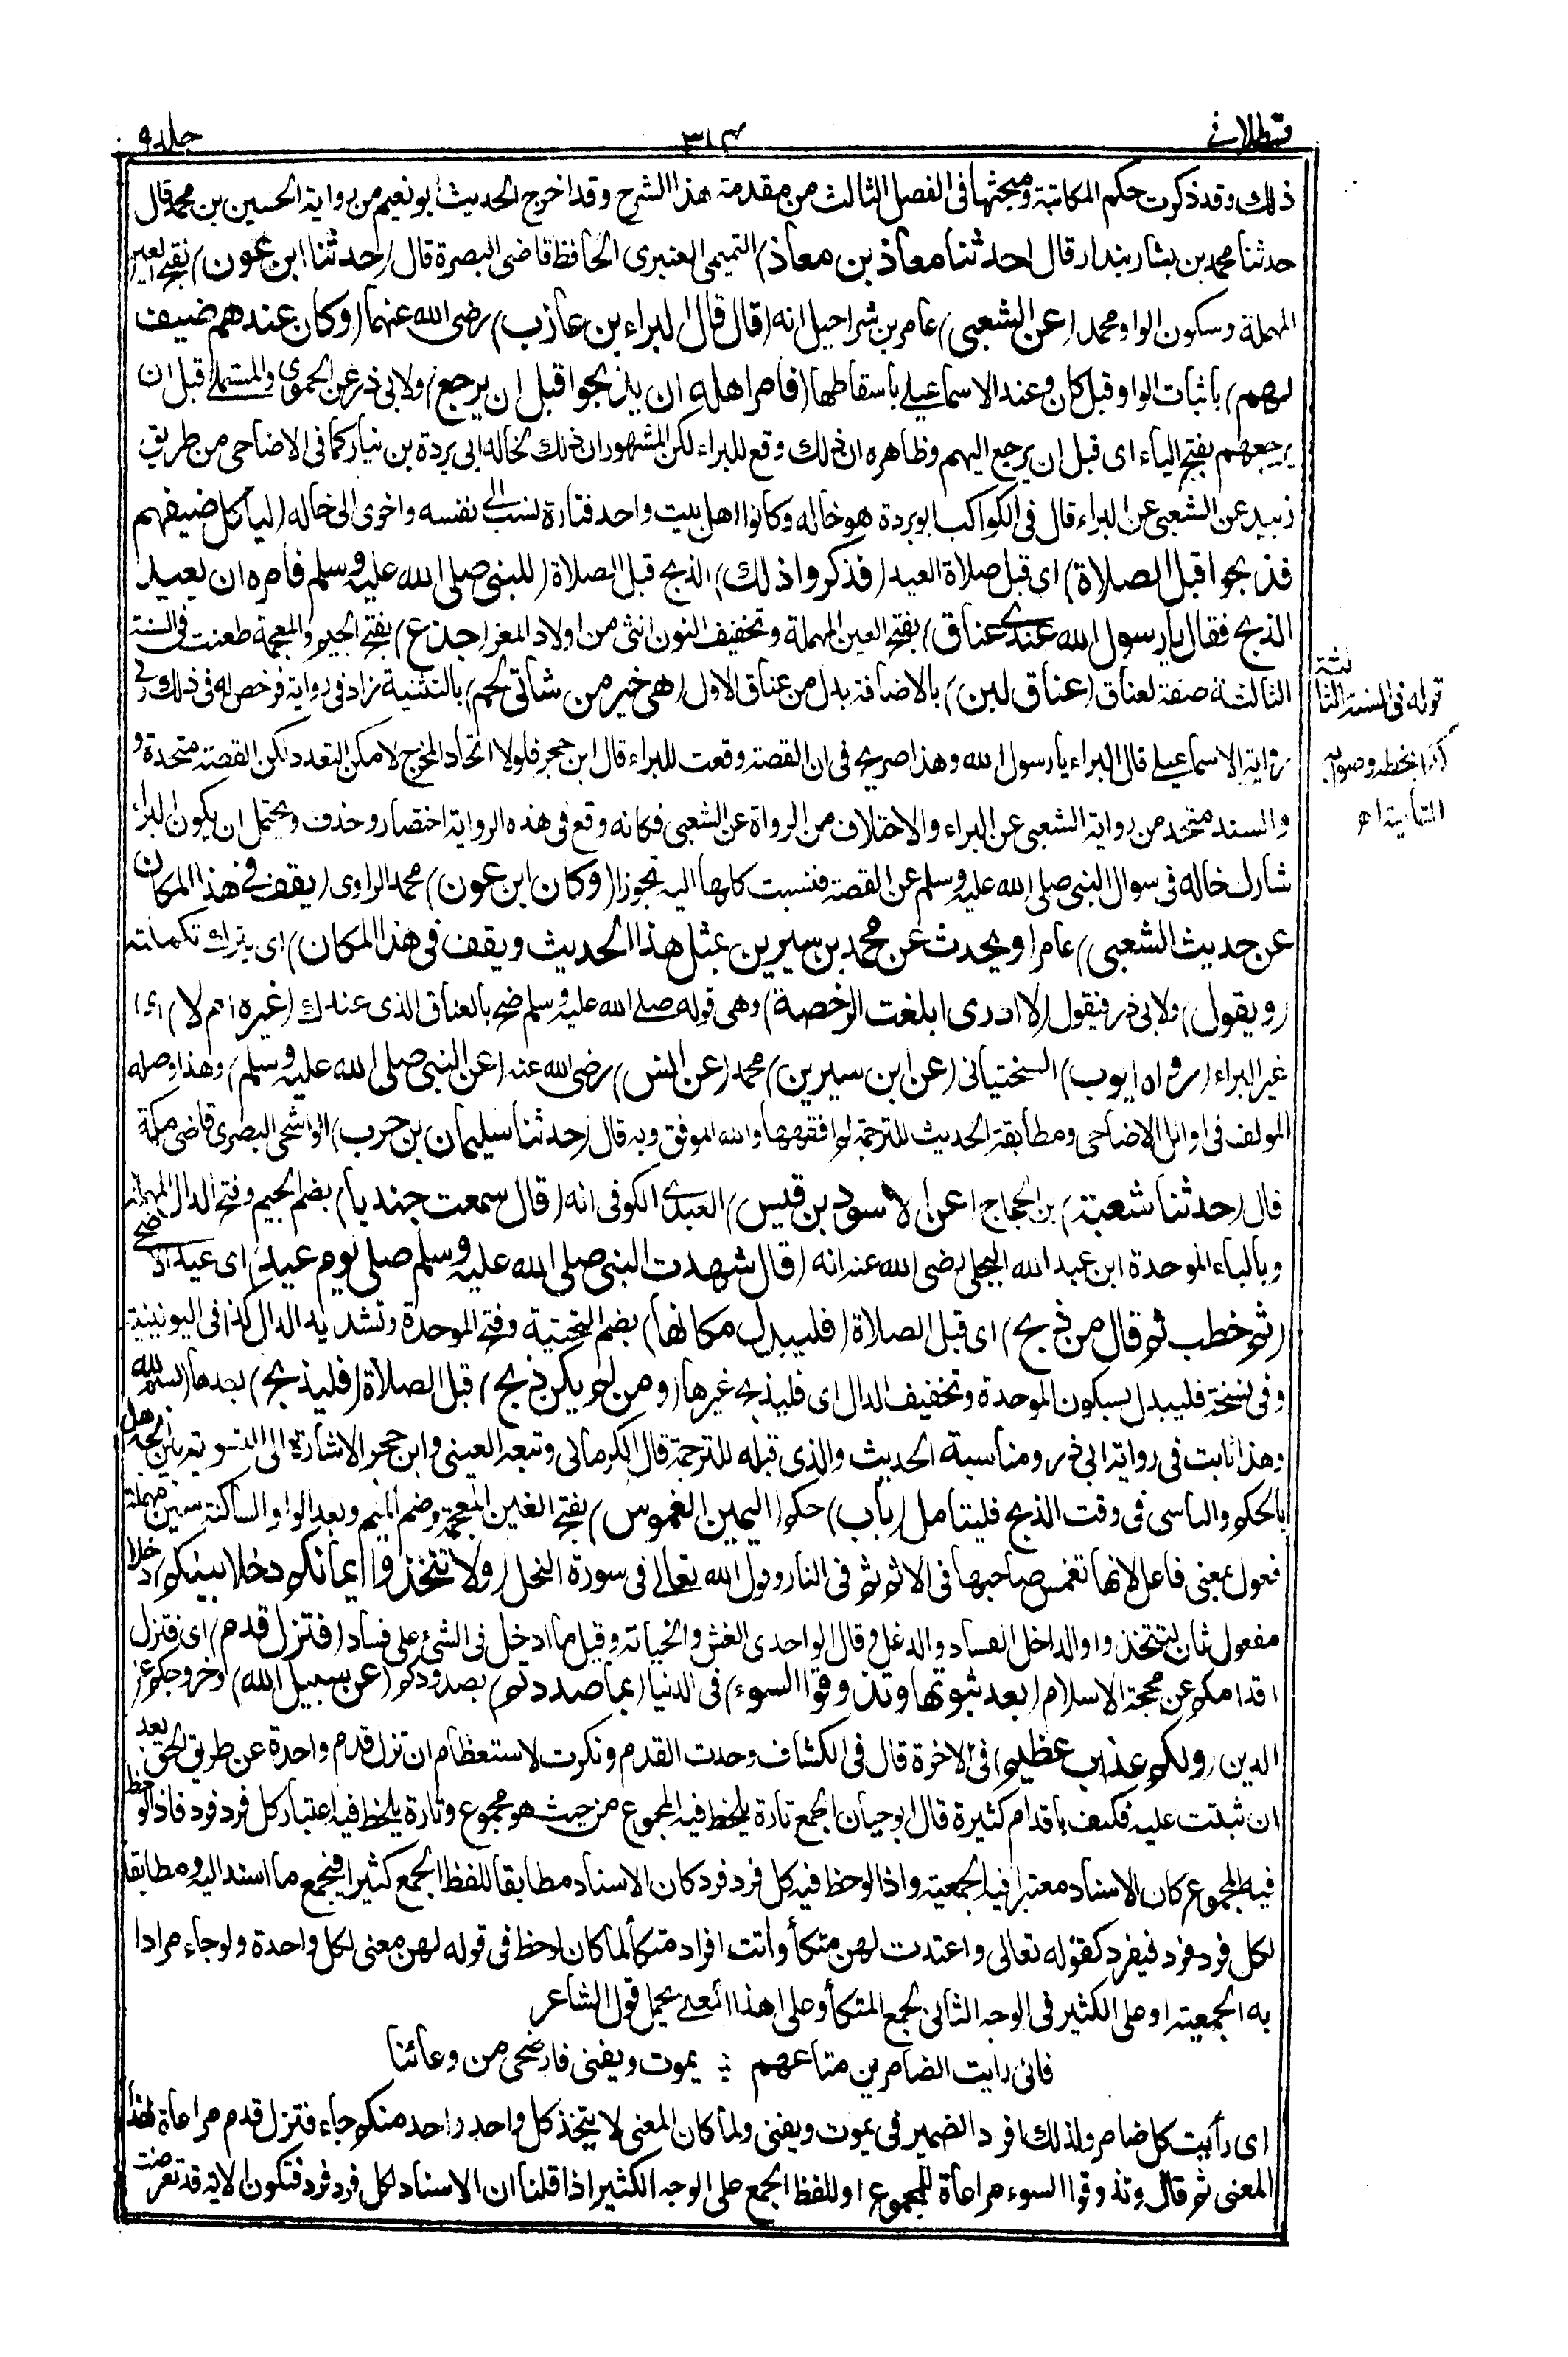 قسطلانى
٣١٤
جلد ٩
ذلك وقد ذكرت حكم المكاتبة ومبحثها فى الفصل الثالث من مقدمة هذا الشرح وقد اخرج الحديث ابو نعيم من رواية الحسين بن محمد قال
حدثنا محمد بن بشار بندار قال (حدثنا معاذ بن معاذ) التميمى العنبرى الحافظ قاضى البصرة قال (حدثنا ابن عون) بفتح العين
المهملة وسكون الواو محمد (عن الشعبى) عامر بن شراحيل انه (قال قال البراء بن عازب) رضى الله عنهما (وكان عندهم ضيف
لهم) باثبات الواو قبل كان وعند الاسماعيلى باسقاطها (فامر اهله ان يذبحوا قبل ان يرجع) ولابى ذر عن الحموى والمستملى قبل ان
يرجعهم بفتح الياء اى قبل ان يرجع اليهم وظاهره ان ذلك وقع للبراء لكن المشهور ان ذلك لخاله ابى بردة بن نيار كما فى الاضاحى من طريق
زبيد عن الشعبى عن البراء قال فى الكواكب ابو بردة هو خاله وكانوا اهل بيت واحد فتارة نسب الى نفسه واخرى الى خاله (ليأكل ضيفهم
فذبحوا قبل الصلاة) اى قبل صلاة العيد (فذكروا ذلك) الذبح قبل الصلاة (للنبى صلى الله عليه وسلم فامره ان يعيد
الذبح فقال يا رسول الله عندى عناق) بفتح العين المهملة وتخفيف النون انثى من اولاد المعز (جذع) بفتح الجيم والمعجمة طعنت فى السنة
الثالثة صفة لعناق (عناق لبن) بالاضافة بدل من عناق الاول (هى خير من شاتى لحم) بالتثنية زاد فى رواية فرخص له فى ذلك وفى
رواية الاسماعيلى قال البراء يا رسول الله وهذا صريح فى ان القصة وقعت للبراء قال ابن حجر فلولا اتحاد المخرج لامكن التعدد لكن القصة متحدة و
والسند متحد من رواية الشعبى عن البراء والاختلاف من الرواة عن الشعبى فكانه وقع فى هذه الرواية اختصار وحذف ويحتمل ان يكون البراء
شارك خاله فى سوال النبى صلى الله عليه وسلم عن القصة فنسبت كلها اليه تجوزا (وكان ابن عون) محمد الراوى (يقف فى هذا المكان
عن حديث الشعبى) عامر (ويحدث عن محمد بن سيرين بمثل هذا الحديث ويقف فى هذا المكان) اى يترك تكملته
(ويقول) ولابى ذر فيقول (لا ادرى ابلغت الرخصة) وهى قوله صلى الله عليه وسلم ضح بالعناق الذى عندك (غيره ام لا) اى
غير البراء (رواه ايوب) السختيانى (عن ابن سيرين) محمد (عن انس) رضى الله عنه (عن النبى صلى الله عليه وسلم) وهذا وصله
المولف فى اوائل الاضاحى ومطابقة الحديث للترجمة لم افقهها والله الموفق وبه قال (حدثنا سليمان بن حرب) الواشحى البصرى قاضى مكة
قال (حدثنا شعبة) بن الحجاج (عن الاسود بن قيس) العبدى الكوفى انه (قال سمعت جندبا) بضم الجيم وفتح الدال المهملة
وبالباء الموحدة ابن عبد الله البجلى رضى الله عنه انه (قال شهدت النبى صلى الله عليه وسلم صلى يوم عيد) اى عيد الاضحى
(ثم خطب ثم قال من ذبح) اى قبل الصلاة (فليبدل مكانها) بضم التحتية وفتح الموحدة وتشديد الدال كذا فى اليونينية
وفى نسخة فليبدل بسكون الموحدة وتخفيف الدال اى فليذبح غيرها (ومن لم يكن ذبح) قبل الصلاة (فليذبح) بعدها (بسم الله)
وهذا ثابت فى رواية ابى ذر ومناسبة الحديث والذى قبله للترجمة قال الكرمانى وتبعه العينى وابن حجر الاشارة الى التسوية بين الجاهل
بالحكم والناسى فى وقت الذبح فليتامل (باب) حكم (اليمين الغموس) بفتح الغين المعجمة وضم الميم وبعد الواو الساكنة سين مهملة
فعول بمعنى فاعل لانها تغمس صاحبها فى الاثم ثم فى النار وقول الله تعالى فى سورة النحل (ولا تتخذوا ايمانكم دخلا بينكم) دخلا
مفعول ثان لتتخذوا والدخل الفساد والدغل وقال الواحدى الغش والخيانة وقيل ما ادخل فى الشئ على فساد (فتزل قدم) اى فتزل
اقدامكم عن محجة الاسلام (بعد ثبوتها وتذوقوا السوء) فى الدنيا (بما صددتم) بصدودكم (عن سبيل الله) وخروجكم عن
الدين (ولكم عذاب عظيم) فى الاخرة قال فى الكشاف وحدت القدم ونكرت لاستعظام ان تزل قدم واحدة عن طريق الحق بعد
ان ثبتت عليه فكيف باقدام كثيرة قال ابو حيان الجمع تارة يلحظ فيه المجموع من حيث هو مجموع وتارة يلحظ فيه اعتبار كل فرد فرد فاذا لوحظ
فيه المجموع كان الاسناد معتبرا فيه الجمعية واذا لوحظ فيه كل فرد فرد كان الاسناد مطابقا للفظ الجمع كثيرا فيجمع ما اسند اليه ومطابقا
لكل فرد فرد فيفرد كقوله تعالى واعتدت لهن متكأ وآتت افراد متكأ لما كان لاحظ فى قوله لهن معنى لكل واحدة ولو جاء مرادا
به الجمعية او على الكثير فى الوجه الثانى لجمع المتكأ وعلى هذا المعنى يحمل قول الشاعر
فانى رايت الضامرين متاعهم ؞ يموت ويفنى فارضخى من وعائنا
اى رأيت كل ضامر ولذلك افرد الضمير فى يموت ويفنى ولما كان المعنى لا يتخذ كل واحد واحد منكم جاء فتزل قدم مراعاة لهذا
المعنى ثم قال وتذوقوا السوء مراعاة للمجموع او للفظ الجمع على الوجه الكثير اذا قلنا ان الاسناد لكل فرد فرد فتكون الاية قد تعرضت
قوله فى السنة الثالثة
كذا بخطه وصوابه
الثانية اهـ